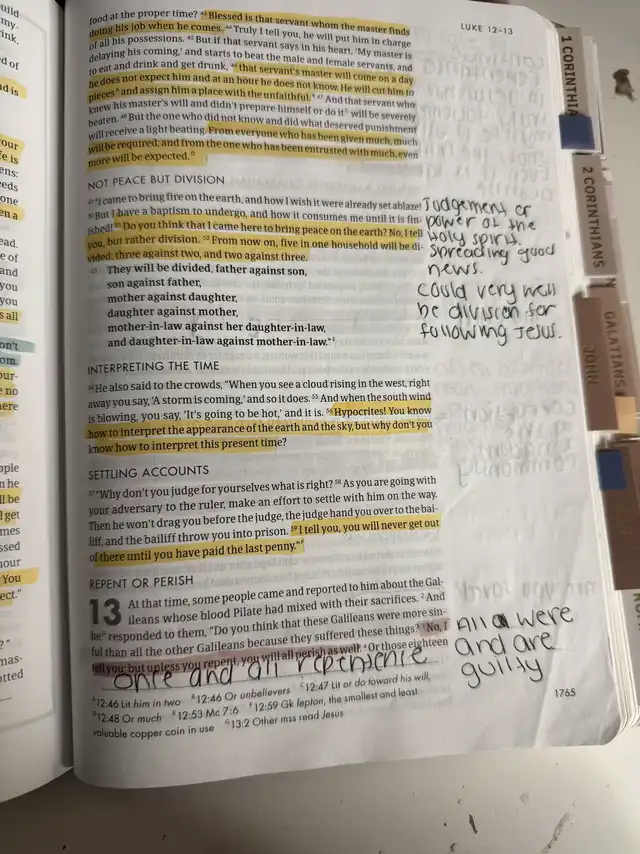 LUKE 12–13
food at the proper time? 43 Blessed is that servant whom the master finds
doing his job when he comes. 44 Truly I tell you, he will put him in charge
of all his possessions. 45 But if that servant says in his heart, ‘My master is
delaying his coming,’ and starts to beat the male and female servants, and
to eat and drink and get drunk, 46 that servant's master will come on a day
he does not expect him and at an hour he does not know. He will cut him to
pieces A and assign him a place with the unfaithful. B 47 And that servant who
knew his master's will and didn't prepare himself or do it C will be severely
beaten. 48 But the one who did not know and did what deserved punishment
will receive a light beating. From everyone who has been given much, much
will be required; and from the one who has been entrusted with much, even
more will be expected. D
NOT PEACE BUT DIVISION
49 “I came to bring fire on the earth, and how I wish it were already set ablaze!
50 But I have a baptism to undergo, and how it consumes me until it is fin-
ished! 51 Do you think that I came here to bring peace on the earth? No, I tell
you, but rather division. 52 From now on, five in one household will be di-
vided: three against two, and two against three.
53 They will be divided, father against son,
son against father,
mother against daughter,
daughter against mother,
mother-in-law against her daughter-in-law,
and daughter-in-law against mother-in-law.” E
Judgement or
power of the
Holy spirit.
Spreading good
news.
could very well
be division for
following Jesus.
INTERPRETING THE TIME
54 He also said to the crowds, “When you see a cloud rising in the west, right
away you say, ‘A storm is coming,’ and so it does. 55 And when the south wind
is blowing, you say, ‘It's going to be hot,’ and it is. 56 Hypocrites! You know
how to interpret the appearance of the earth and the sky, but why don't you
know how to interpret this present time?
SETTLING ACCOUNTS
57 “Why don't you judge for yourselves what is right? 58 As you are going with
your adversary to the ruler, make an effort to settle with him on the way.
Then he won't drag you before the judge, the judge hand you over to the bai-
liff, and the bailiff throw you into prison. 59 I tell you, you will never get out
of there until you have paid the last penny.” F
REPENT OR PERISH
13 At that time, some people came and reported to him about the Gal-
ileans whose blood Pilate had mixed with their sacrifices. 2 And
he G responded to them, “Do you think that these Galileans were more sin-
ful than all the other Galileans because they suffered these things? 3 No, I
tell you; but unless you repent, you will all perish as well. 4 Or those eighteen
once and all repentence
All were
and are
guilty
A 12:46 Lit him in two B 12:46 Or unbelievers C 12:47 Lit or do toward his will,
D 12:48 Or much E 12:53 Mc 7:6 F 12:59 Gk lepton, the smallest and least
valuable copper coin in use G 13:2 Other mss read Jesus
1765
1 CORINTHIA
2 CORINTHIANS
GALATIANS
JOHN